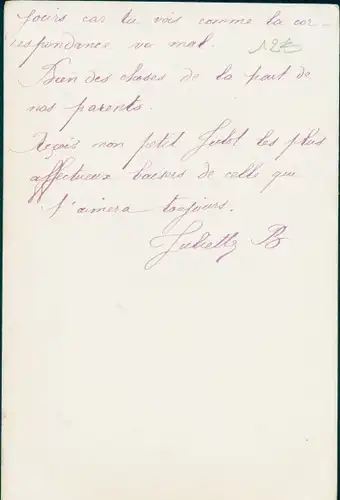 jours car tu vois comme la cor-
respondance va mal. 12€
Bien des choses de la part de
nos parents.
Reçois mon petit Julot les plus
affectueux baisers de celle qui
t'aimera toujours.
Juliette B